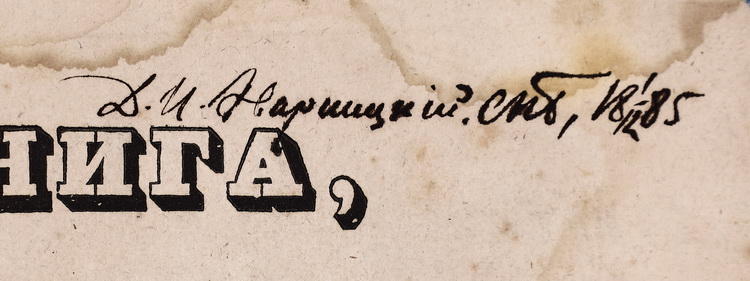 Д. И. Эварницкій. спб, 18 1/II 85
НИГА,